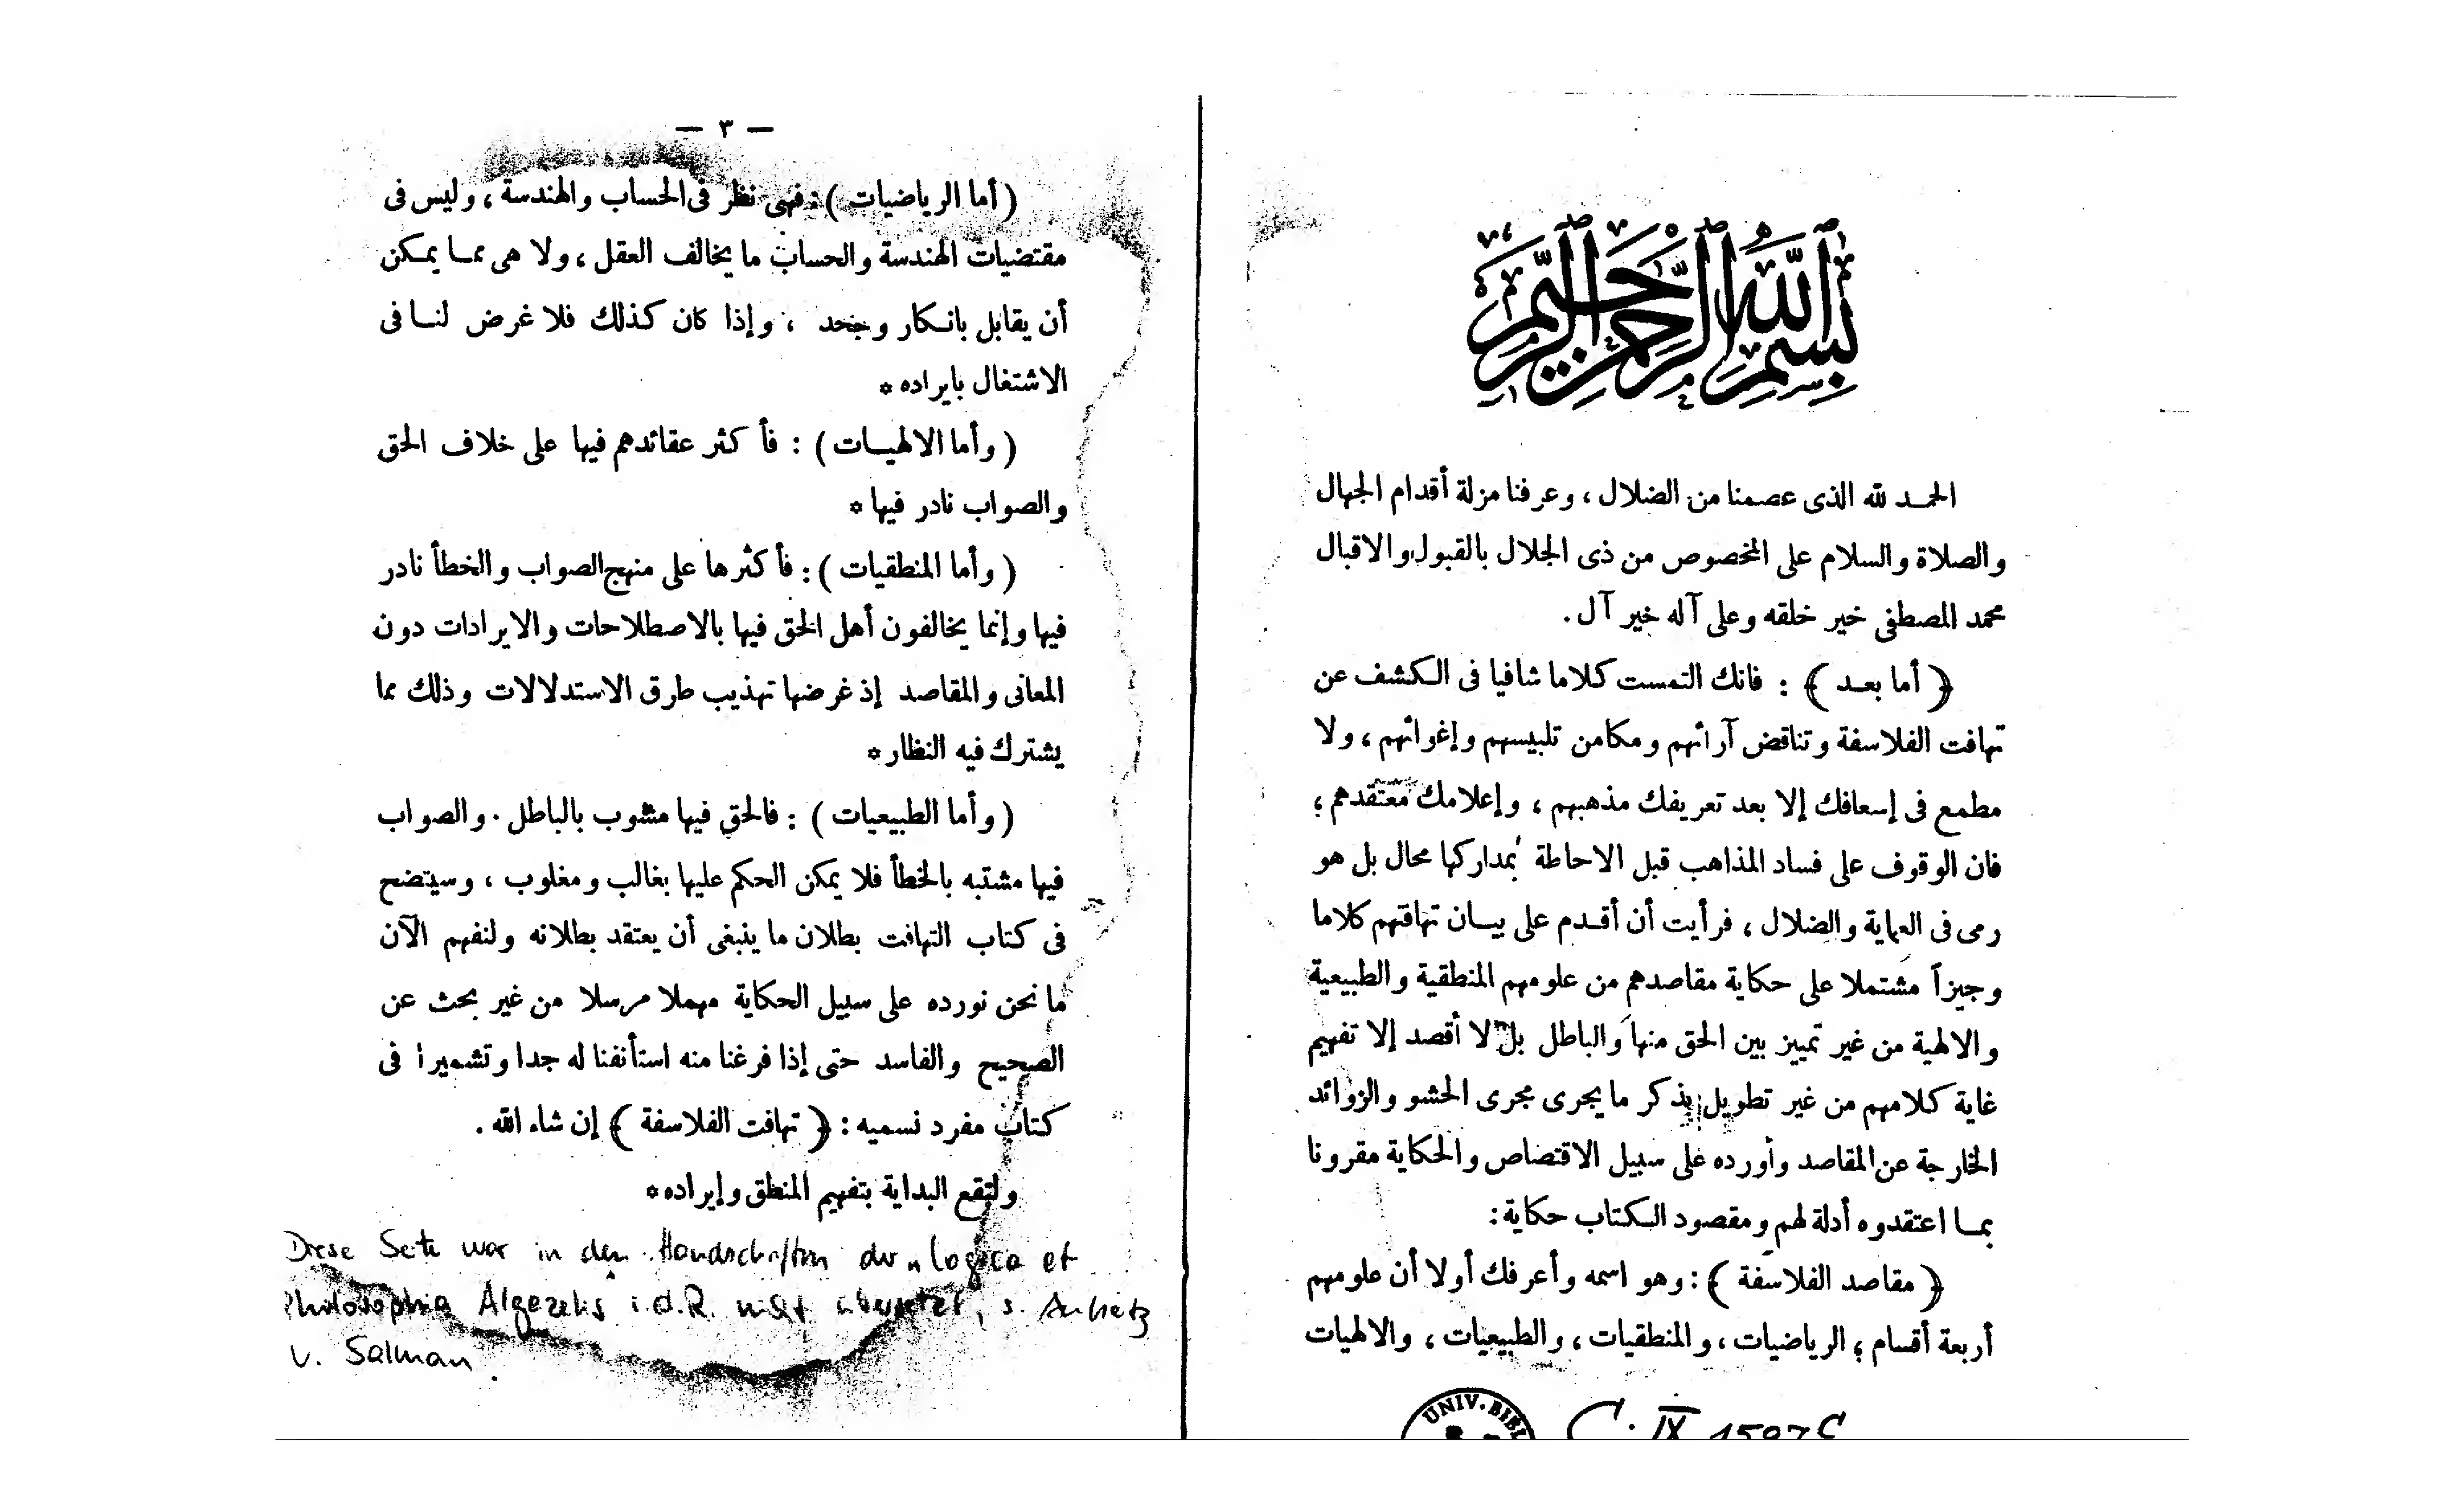 بسم الله الرحمن الرحيم
الحمد لله الذى عصمنا من الضلال ، وعرفنا مزلة أقدام الجهال
والصلاة والسلام على المخصوص من ذى الجلال بالقبول والاقبال
محمد المصطفى خير خلقه وعلى آله خير آل .
﴿ أما بعد ﴾ : فانك التمست كلاما شافيا فى الكشف عن
تهافت الفلاسفة وتناقض آرائهم ومكامن تلبيسهم وإغوائهم ، ولا
مطمع فى إسعافك إلا بعد تعريفك مذهبهم ، وإعلامك معتقدهم ؛
فان الوقوف على فساد المذاهب قبل الاحاطة بمداركها محال بل هو
رمى فى العماية والضلال ، فرأيت أن أقدم على بيان تهافتهم كلاما
وجيزاً مشتملا على حكاية مقاصدهم من علومهم المنطقية والطبيعية
والالهية من غير تمييز بين الحق منها والباطل بل لا أقصد إلا تفهيم
غاية كلامهم من غير تطويل بذكر ما يجرى مجرى الحشو والزوائد
الخارجة عن المقاصد وأورده على سبيل الاقتصاص والحكاية مقرونا
بما اعتقدوه أدلة لهم ومقصود الكتاب حكاية :
﴿ مقاصد الفلاسفة ﴾ : وهو اسمه وأعرفك أولا أن علومهم
أربعة أقسام ؛ الرياضيات ، والمنطقيات ، والطبيعيات ، والالهيات
UNIV. BIBL
C. IX
— ٣ —
( أما الرياضيات ) : فهى نظر فى الحساب والهندسة ، وليس فى
مقتضيات الهندسة والحساب ما يخالف العقل ، ولا هى مما يمكن
أن يقابل بانكار وجحد ، وإذا كان كذلك فلا غرض لنا فى
الاشتغال بايراده *
( وأما الالهيات ) : فأكثر عقائدهم فيها على خلاف الحق
والصواب نادر فيها *
( وأما المنطقيات ) : فأكثرها على منهج الصواب والخطأ نادر
فيها وإنما يخالفون أهل الحق فيها بالاصطلاحات والايرادات دون
المعانى والمقاصد إذ غرضها تهذيب طرق الاستدلالات وذلك مما
يشترك فيه النظار *
( وأما الطبيعيات ) : فالحق فيها مشوب بالباطل . والصواب
فيها مشتبه بالخطأ فلا يمكن الحكم عليها بغالب ومغلوب ، وسيتضح
فى كتاب التهافت بطلان ما ينبغى أن يعتقد بطلانه ولنفهم الآن
ما نحن نورده على سبيل الحكاية مهملا مرسلا من غير بحث عن
الصحيح والفاسد حتى إذا فرغنا منه استأنفنا له جدا وتشميرا فى
كتاب مفرد نسميه : ﴿ تهافت الفلاسفة ﴾ إن شاء الله .
ولتقع البداية بتفهيم المنطق وإيراده *
Diese Seite war in den Handschriften der „Logica et
Philosophia Algazelis i.d.R. nicht übersetzt, s. Aufsatz
v. Salman